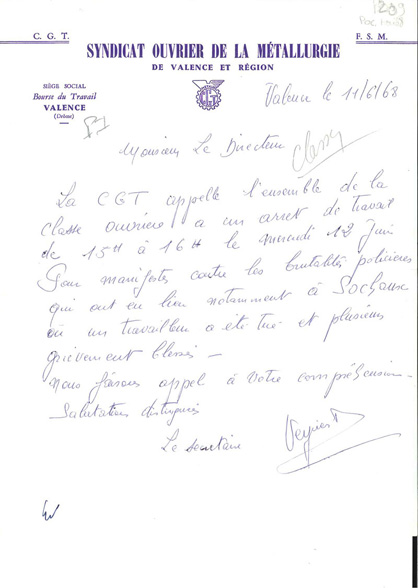 C. G. T.
F. S. M.
SYNDICAT OUVRIER DE LA MÉTALLURGIE
DE VALENCE ET RÉGION
SIÈGE SOCIAL
Bourse du Travail
VALENCE
(Drôme)
Valence le 11/6/68
Monsieur Le Directeur
La CGT appelle l'ensemble de la
classe ouvrière a un arret de travail
de 15H à 16H le mercredi 12 Juin
Pour manifester contre les brutalités policières
qui ont eu lieu notamment à Sochaux
où un travailleur a été tué et plusieurs
grièvement blessés -
Nous faisons appel à votre compréhension -
Salutations distinguées
Le secrétaire